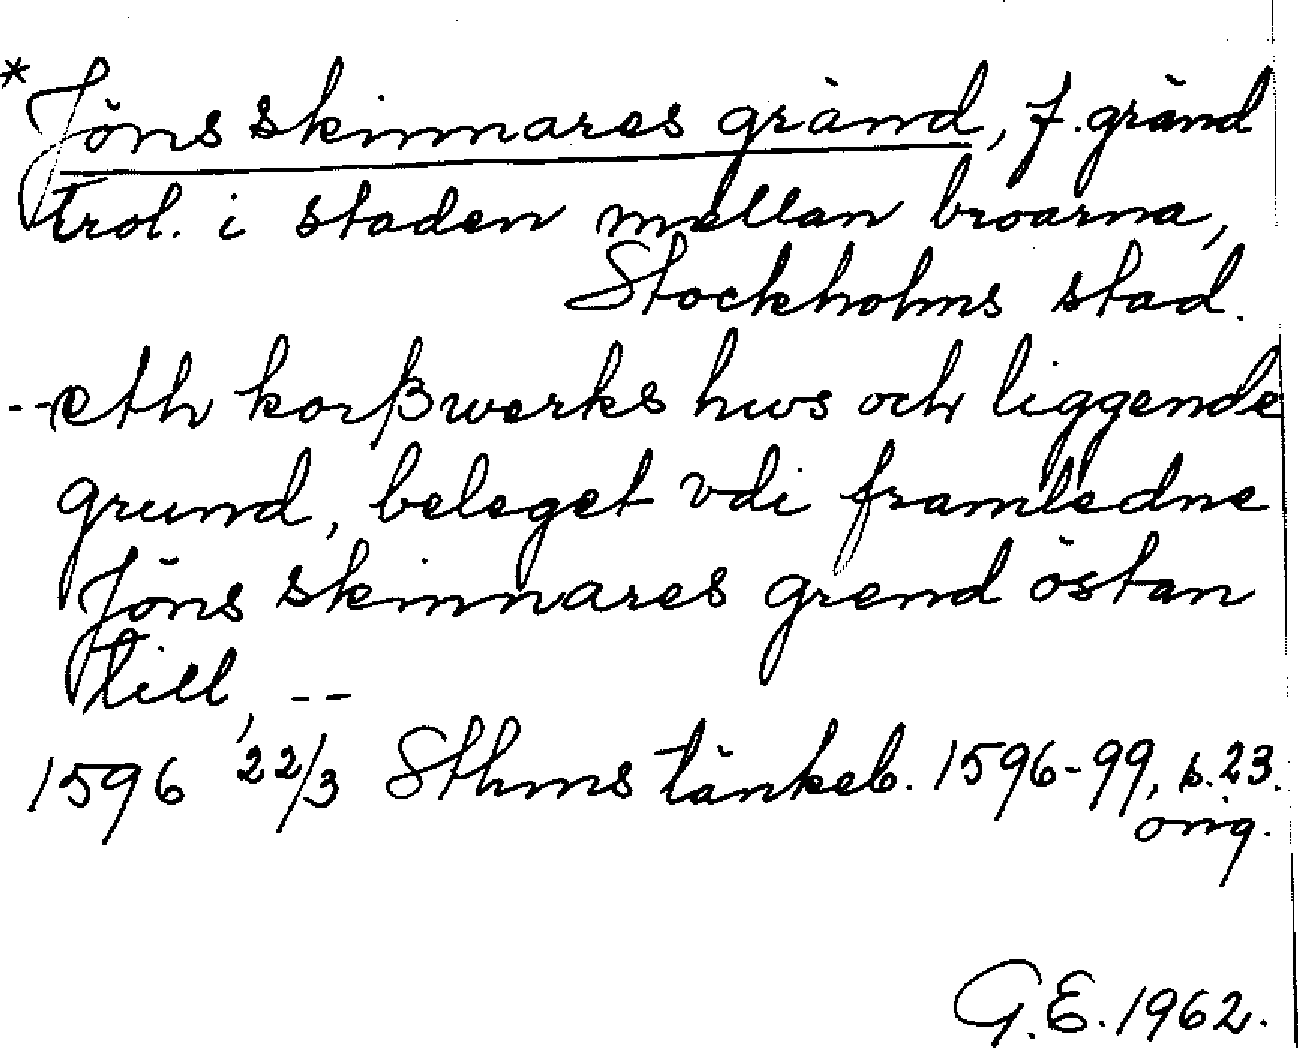 *Jöns skinnares gränd, f. gränd
trol. i staden mellan broarna,
Stockholms stad.
--eth korßwerks hws och liggende
grund, beleget vdi framledne
Jöns skinnares grend östan
till, --
1596 22/3 Sthms tänkeb. 1596-99, s. 23.
orig.
G.E. 1962.